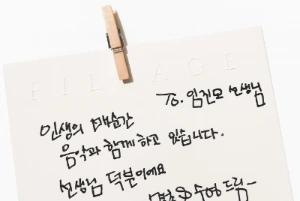 FILLAGE
To. 임진모 선생님
인생의 매순간
음악과 함께 하고 있습니다.
선생님 덕분이에요
수영 드림-